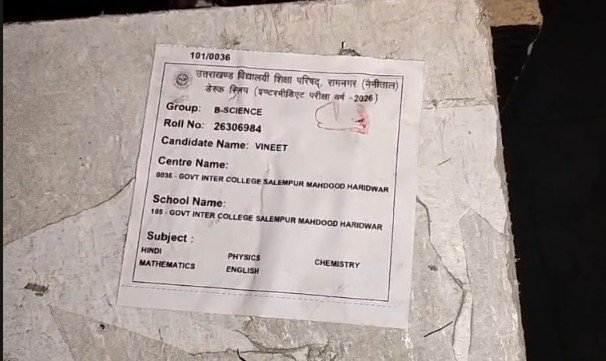 101/0036
उत्तराखण्ड विद्यालयी शिक्षा परिषद्, रामनगर (नैनीताल)
डेस्क स्लिप (इण्टरमीडिएट परीक्षा वर्ष -2026)
Group: B-SCIENCE
Roll No: 26306984
Candidate Name: VINEET
Centre Name:
0036 - GOVT INTER COLLEGE SALEMPUR MAHDOOD HARIDWAR
School Name:
105 - GOVT INTER COLLEGE SALEMPUR MAHDOOD HARIDWAR
Subject :
HINDI PHYSICS CHEMISTRY
MATHEMATICS ENGLISH